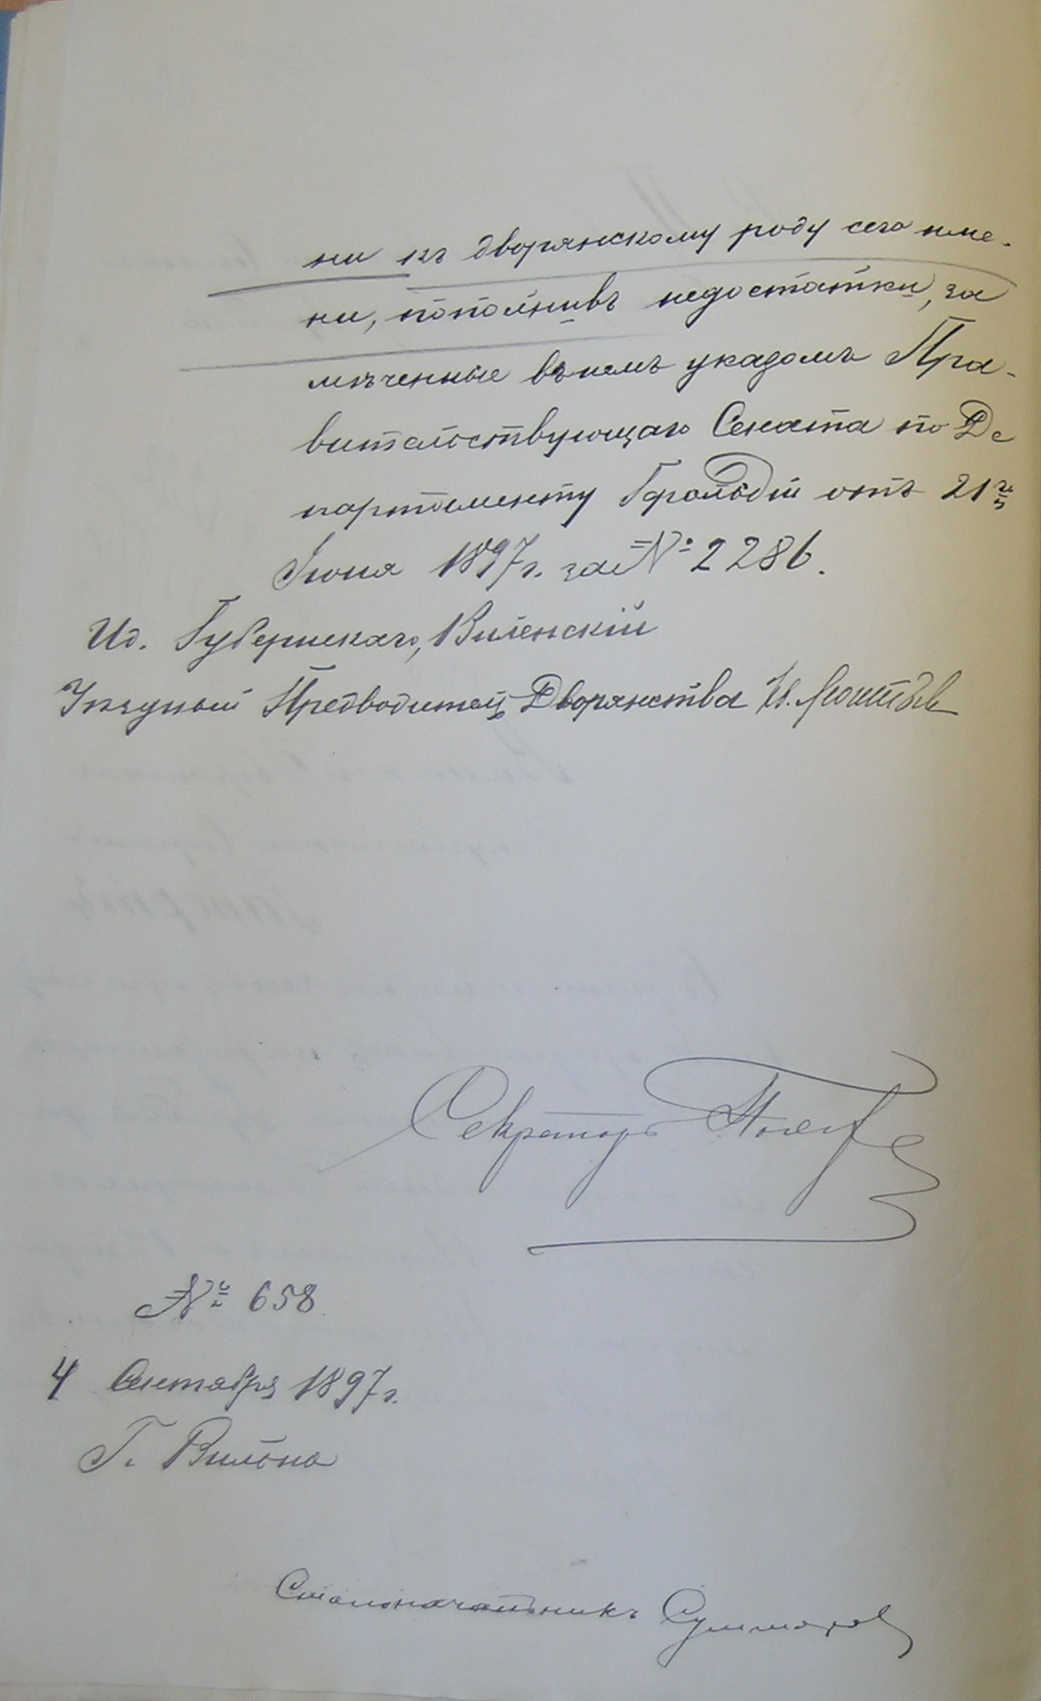 ни къ дворянскому роду сего име-
ни, пополнивъ недостатки, за
мѣченные въ немъ указомъ Пра-
вительствующаго Сената по Де
партаменту Герольдіи отъ 21го
Іюня 1897 г. за № 2286.
Ид. Губернскаго, Виленскій
Уѣздный Предводитель Дворянства
Секретарь
№ 658
4 Сентября 1897 г.
Г. Вильна
Столоначальникъ